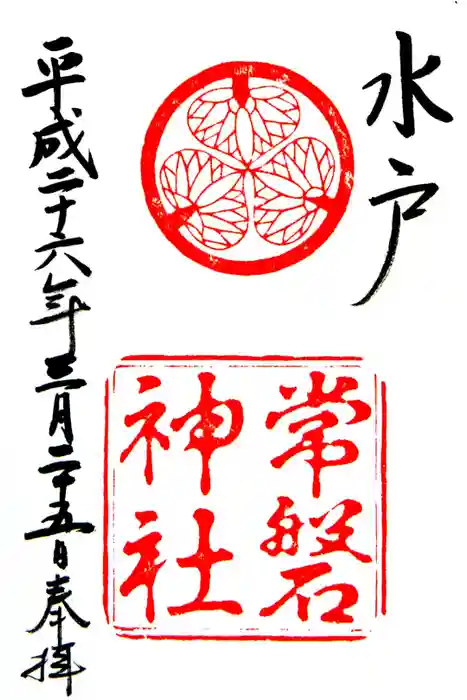 水戸
常磐
神社
平成二十六年三月二十五日奉拝